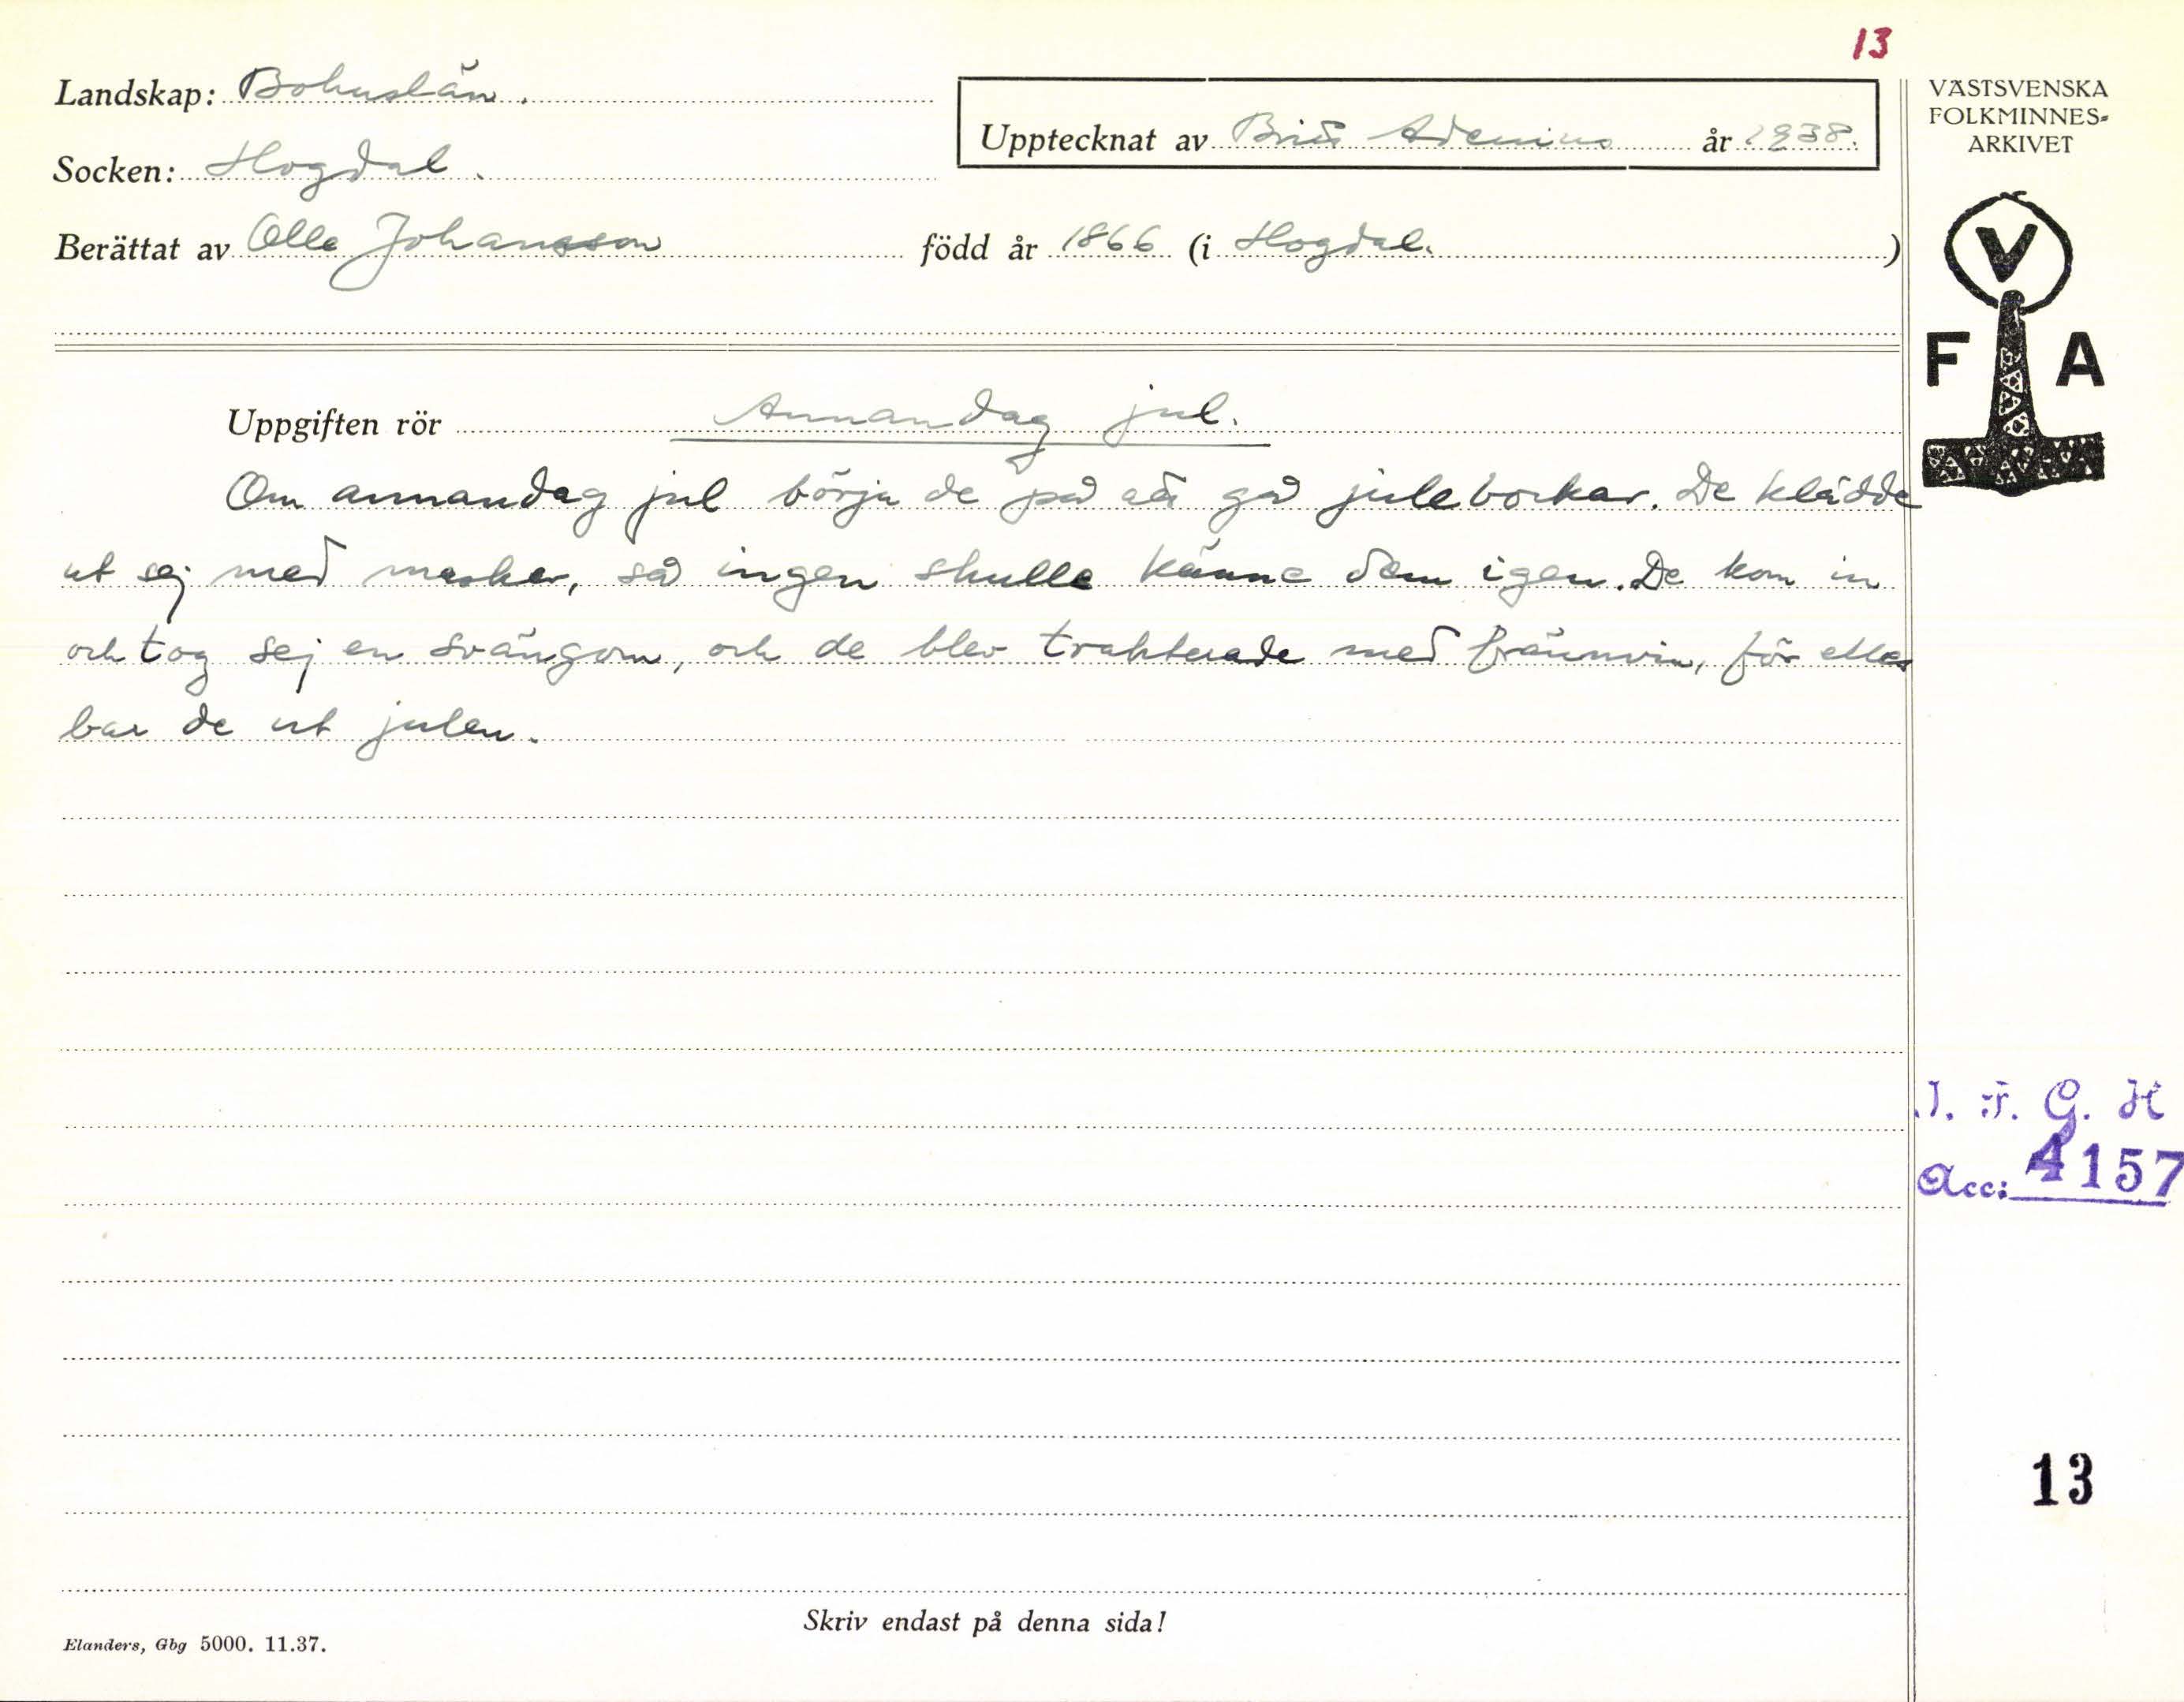 13
Landskap: Bohuslän.
Upptecknat av Britt Adenius år 1938.
Socken: Hogdal.
Berättat av Olle Johansson född år 1866 (i Hogdal.)
VÄSTSVENSKA
FOLKMINNES-
ARKIVET
V
F A
Uppgiften rör Annandag jul.
Om annandag jul börja de på att gå julebockar. De klädde
ut sej med masker, så ingen skulle känne dem igen. De kom in
och tog sej en svängom, och de blev trakterade med brännvin, för elles
bar de ut julen.
I. F. G. H
Acc: 4157
13
Skriv endast på denna sida!
Elanders, Gbg 5000. 11.37.